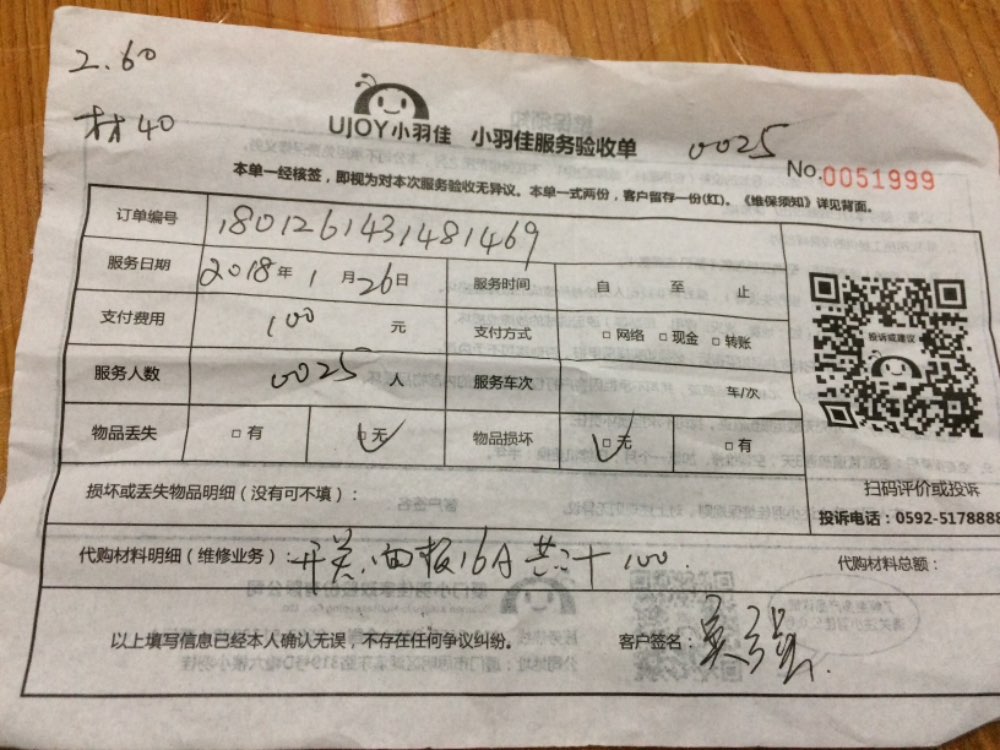 2.60
材40
UJOY小羽佳 小羽佳服务验收单
0025
No.0051999
本单一经核签，即视为对本次服务验收无异议。本单一式两份，客户留存一份(红)。《维保须知》详见背面。
订单编号 1801261431481469
服务日期 2018年1月26日 服务时间 自 至 止
支付费用 100 元 支付方式 □ 网络 □ 现金 □ 转账
服务人数 0025 人 服务车次 车/次
物品丢失 □ 有 □ 无 物品损坏 □ 无 □ 有
投诉或建议
扫码评价或投诉
投诉电话：0592-5178888
损坏或丢失物品明细（没有可不填）：
代购材料明细（维修业务）：开关面板16A共计100 代购材料总额：
以上填写信息已经本人确认无误，不存在任何争议纠纷。 客户签名：吴强